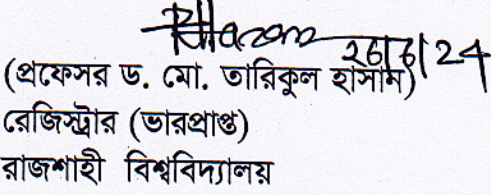 26/6/24
(প্রফেসর ড. মো. তারিকুল হাসান)
রেজিস্ট্রার (ভারপ্রাপ্ত)
রাজশাহী বিশ্ববিদ্যালয়